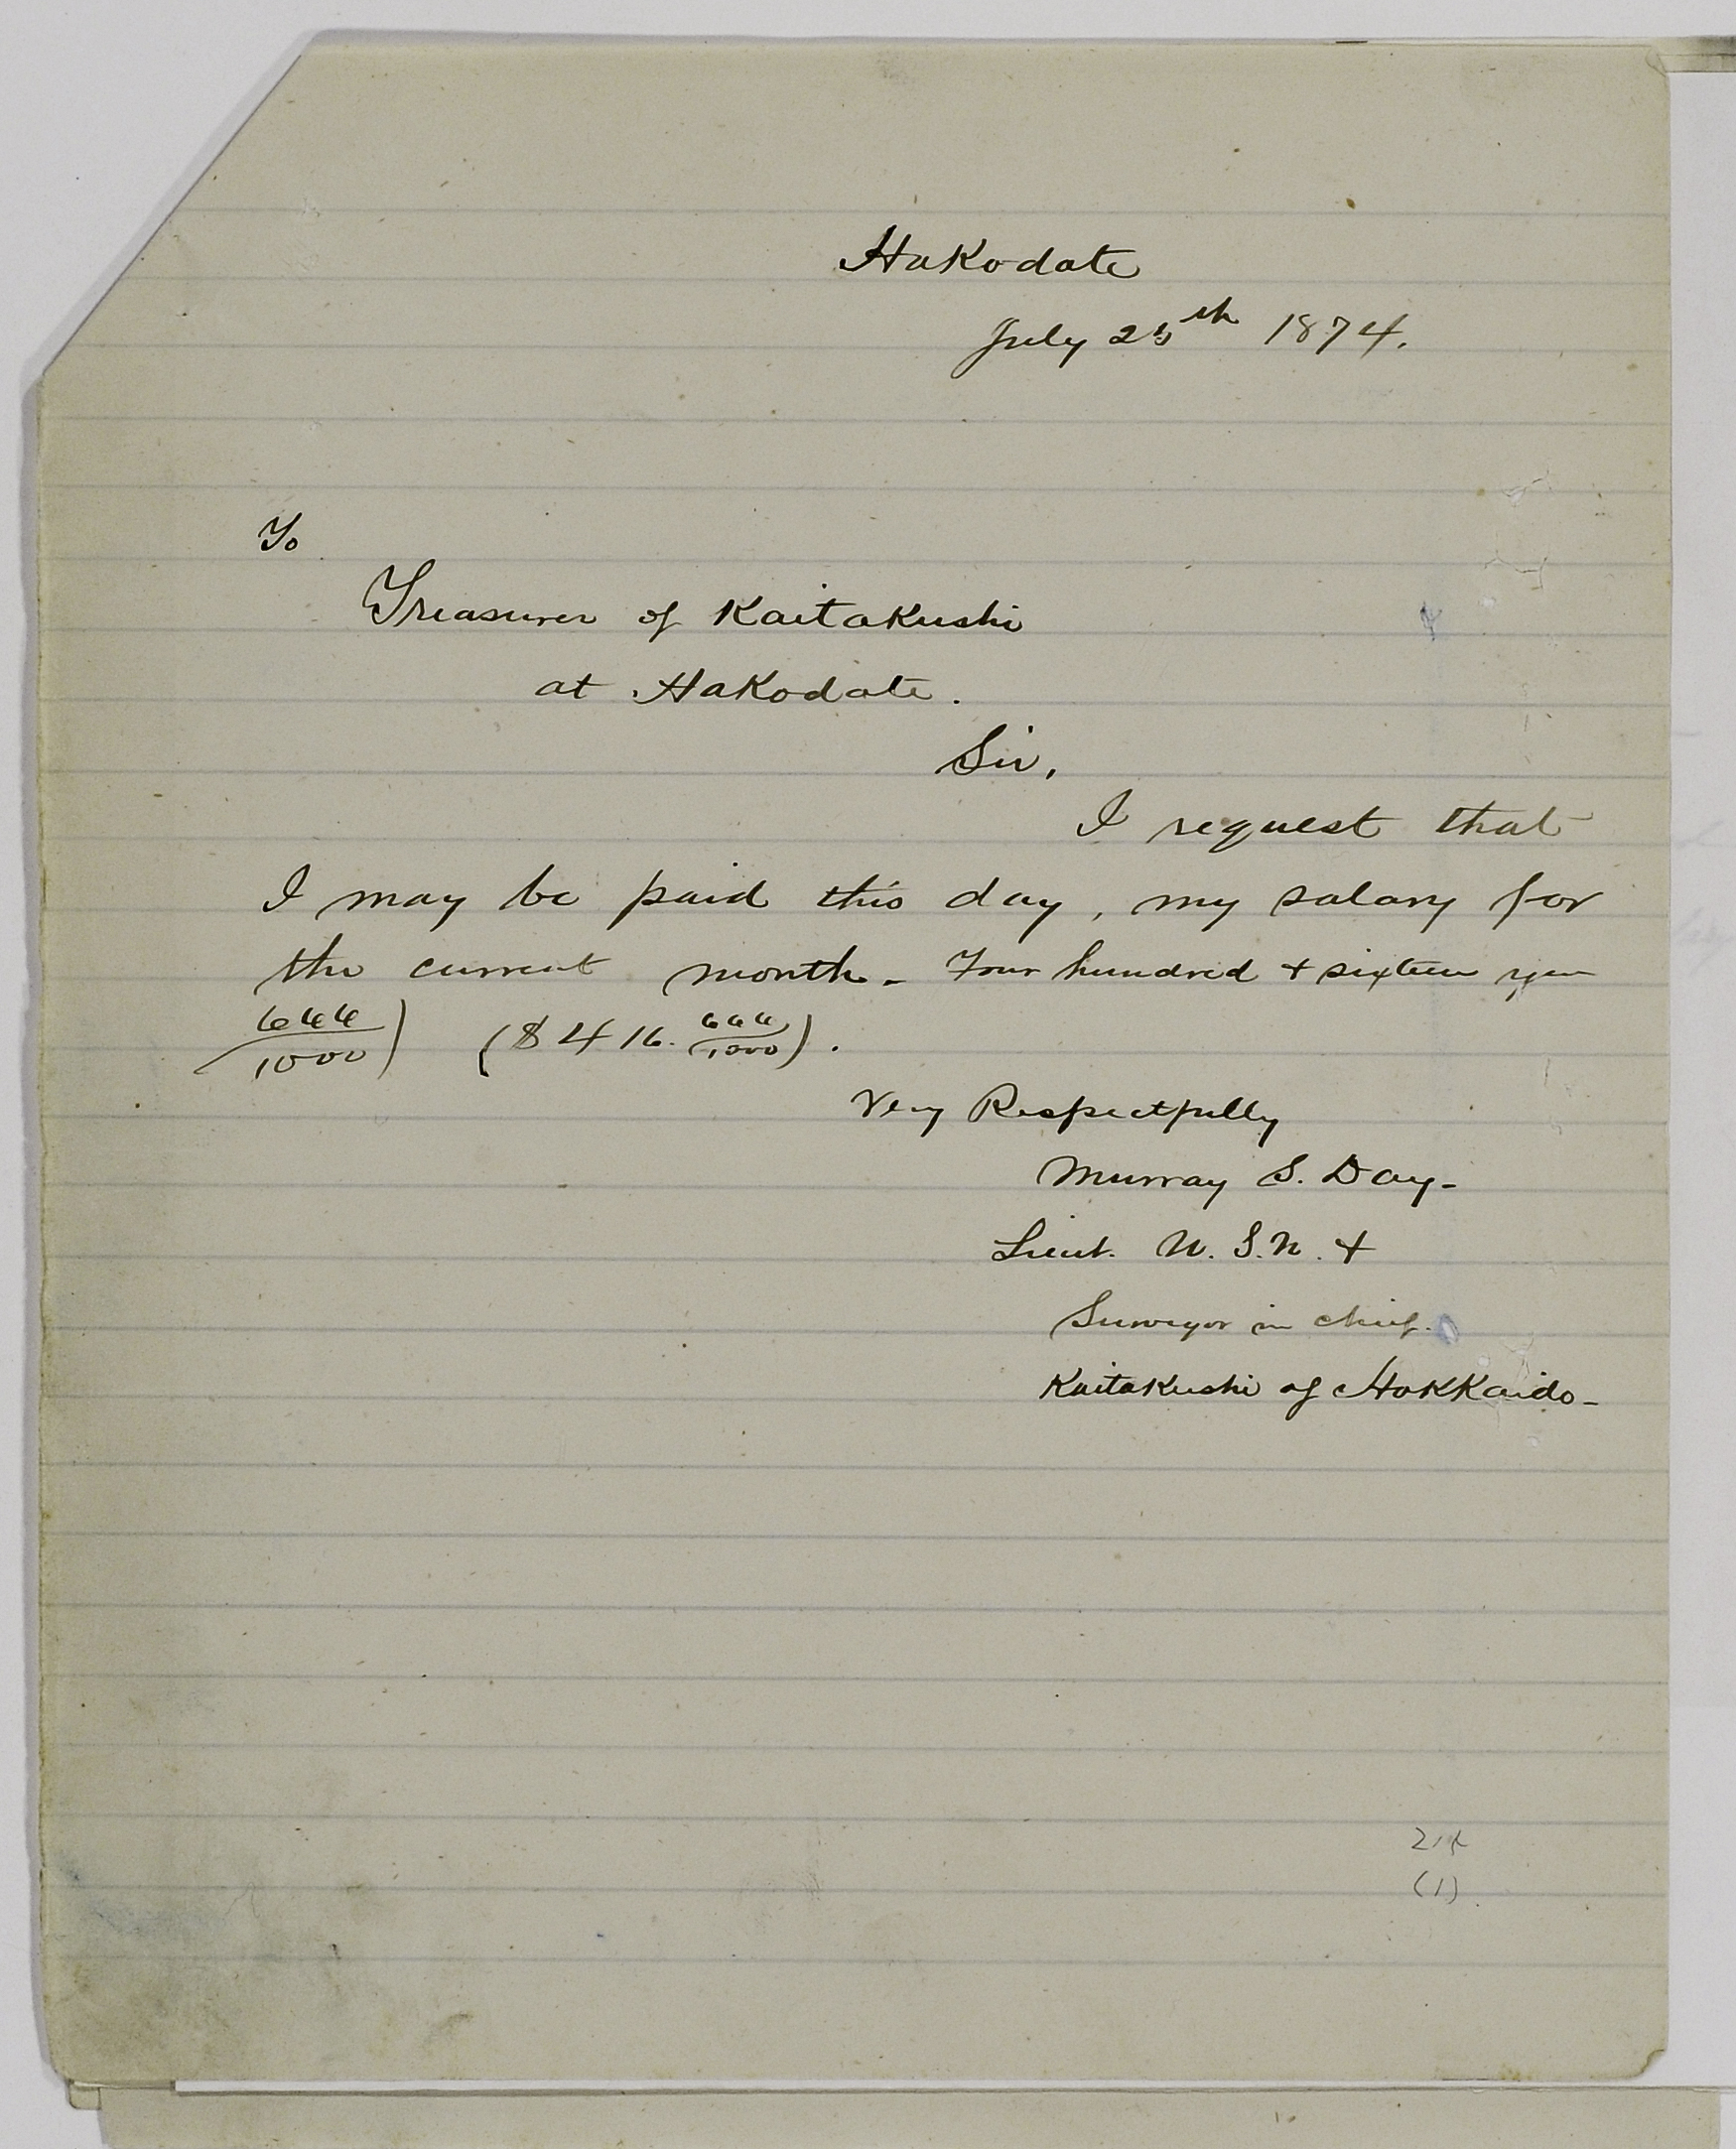 Hakodate
July 25th 1874.
To
Treasurer of Kaitakushi
at Hakodate.
Sir,
I request that
I may be paid this day, my salary for
the current month - Four hundred + sixteen yen
666/1000) ($416. 666/1000).
Very Respectfully
Murray S. Day -
Lieut. U.S.N. +
Surveyor in chief.
Kaitakushi of Hokkaido -
(1)